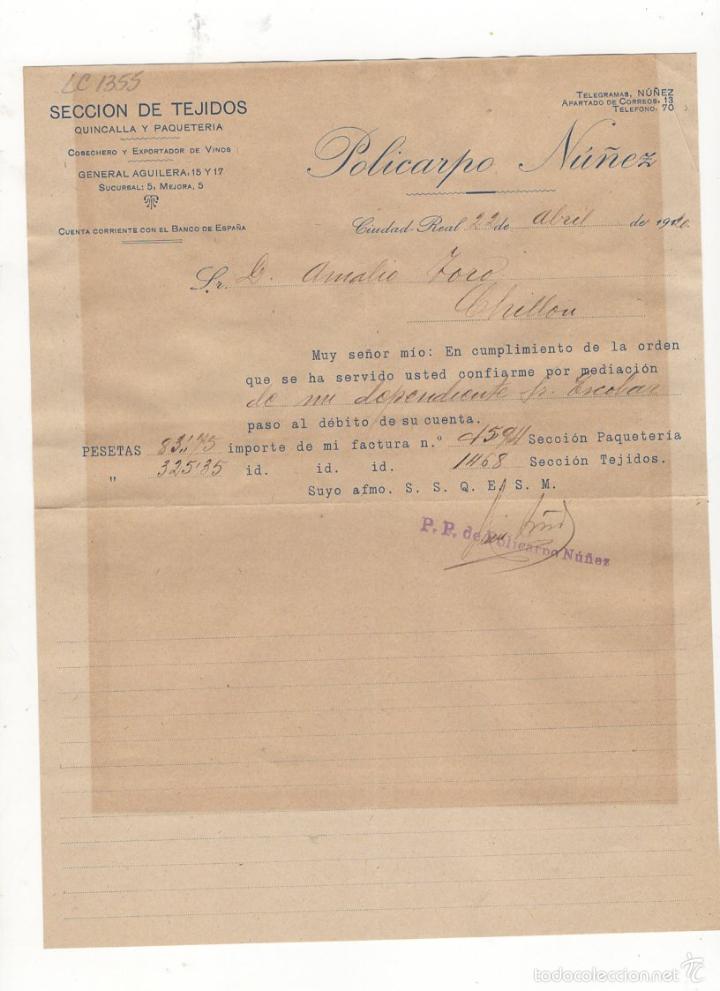 LC 1355
SECCION DE TEJIDOS
QUINCALLA Y PAQUETERIA
COSECHERO Y EXPORTADOR DE VINOS
GENERAL AGUILERA, 15 Y 17
SUCURSAL: 5, MEJORA, 5
CUENTA CORRIENTE CON EL BANCO DE ESPAÑA
TELEGRAMAS, NÚÑEZ
APARTADO DE CORREOS, 13
TELEFONO, 70
Policarpo Núñez
Ciudad-Real 22 de Abril de 1920.
Sr. D. Amalio Toro
Chillon
Muy señor mío: En cumplimiento de la orden
que se ha servido usted confiarme por mediación
de mi dependiente Sr. Escobar
paso al débito de su cuenta.
PESETAS 83,,75 importe de mi factura n.º 1594 Sección Paquetería
" 325'35 id. id. id. 1468 Sección Tejidos.
Suyo afmo. S. S. Q. E. S. M.
P. P. de Policarpo Núñez
todocoleccion.net